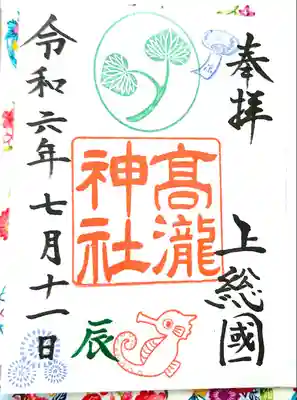 奉拝
上総國
高瀧
神社
辰
令和六年七月十一日